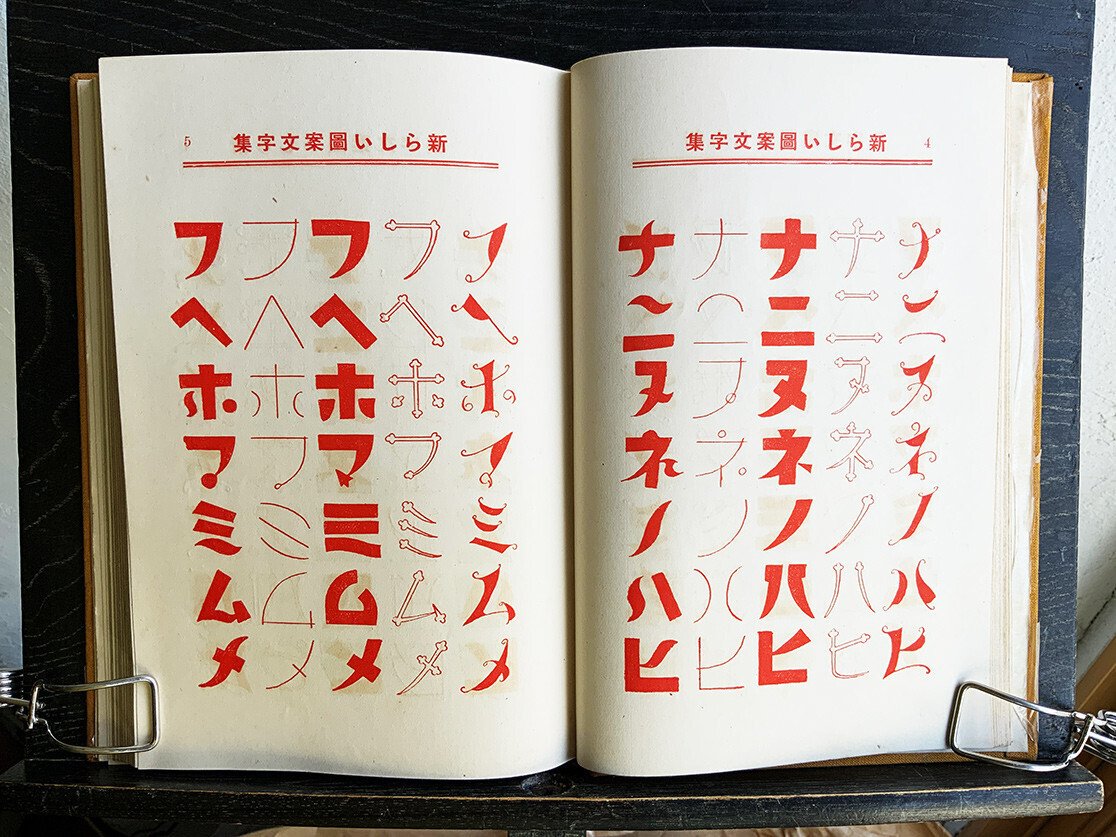 4 新らしい圖案文字集
ナ ナ ナ ナ ナ
ニ ニ ニ ニ ニ
ヌ ヌ ヌ ヌ ヌ
ネ ネ ネ ネ ネ
ノ ノ ノ ノ ノ
ハ ハ ハ ハ ハ
ヒ ヒ ヒ ヒ ヒ
新らしい圖案文字集 5
フ フ フ フ フ
ヘ ヘ ヘ ヘ ヘ
ホ ホ ホ ホ ホ
マ マ マ マ マ
ミ ミ ミ ミ ミ
ム ム ム ム ム
メ メ メ メ メ